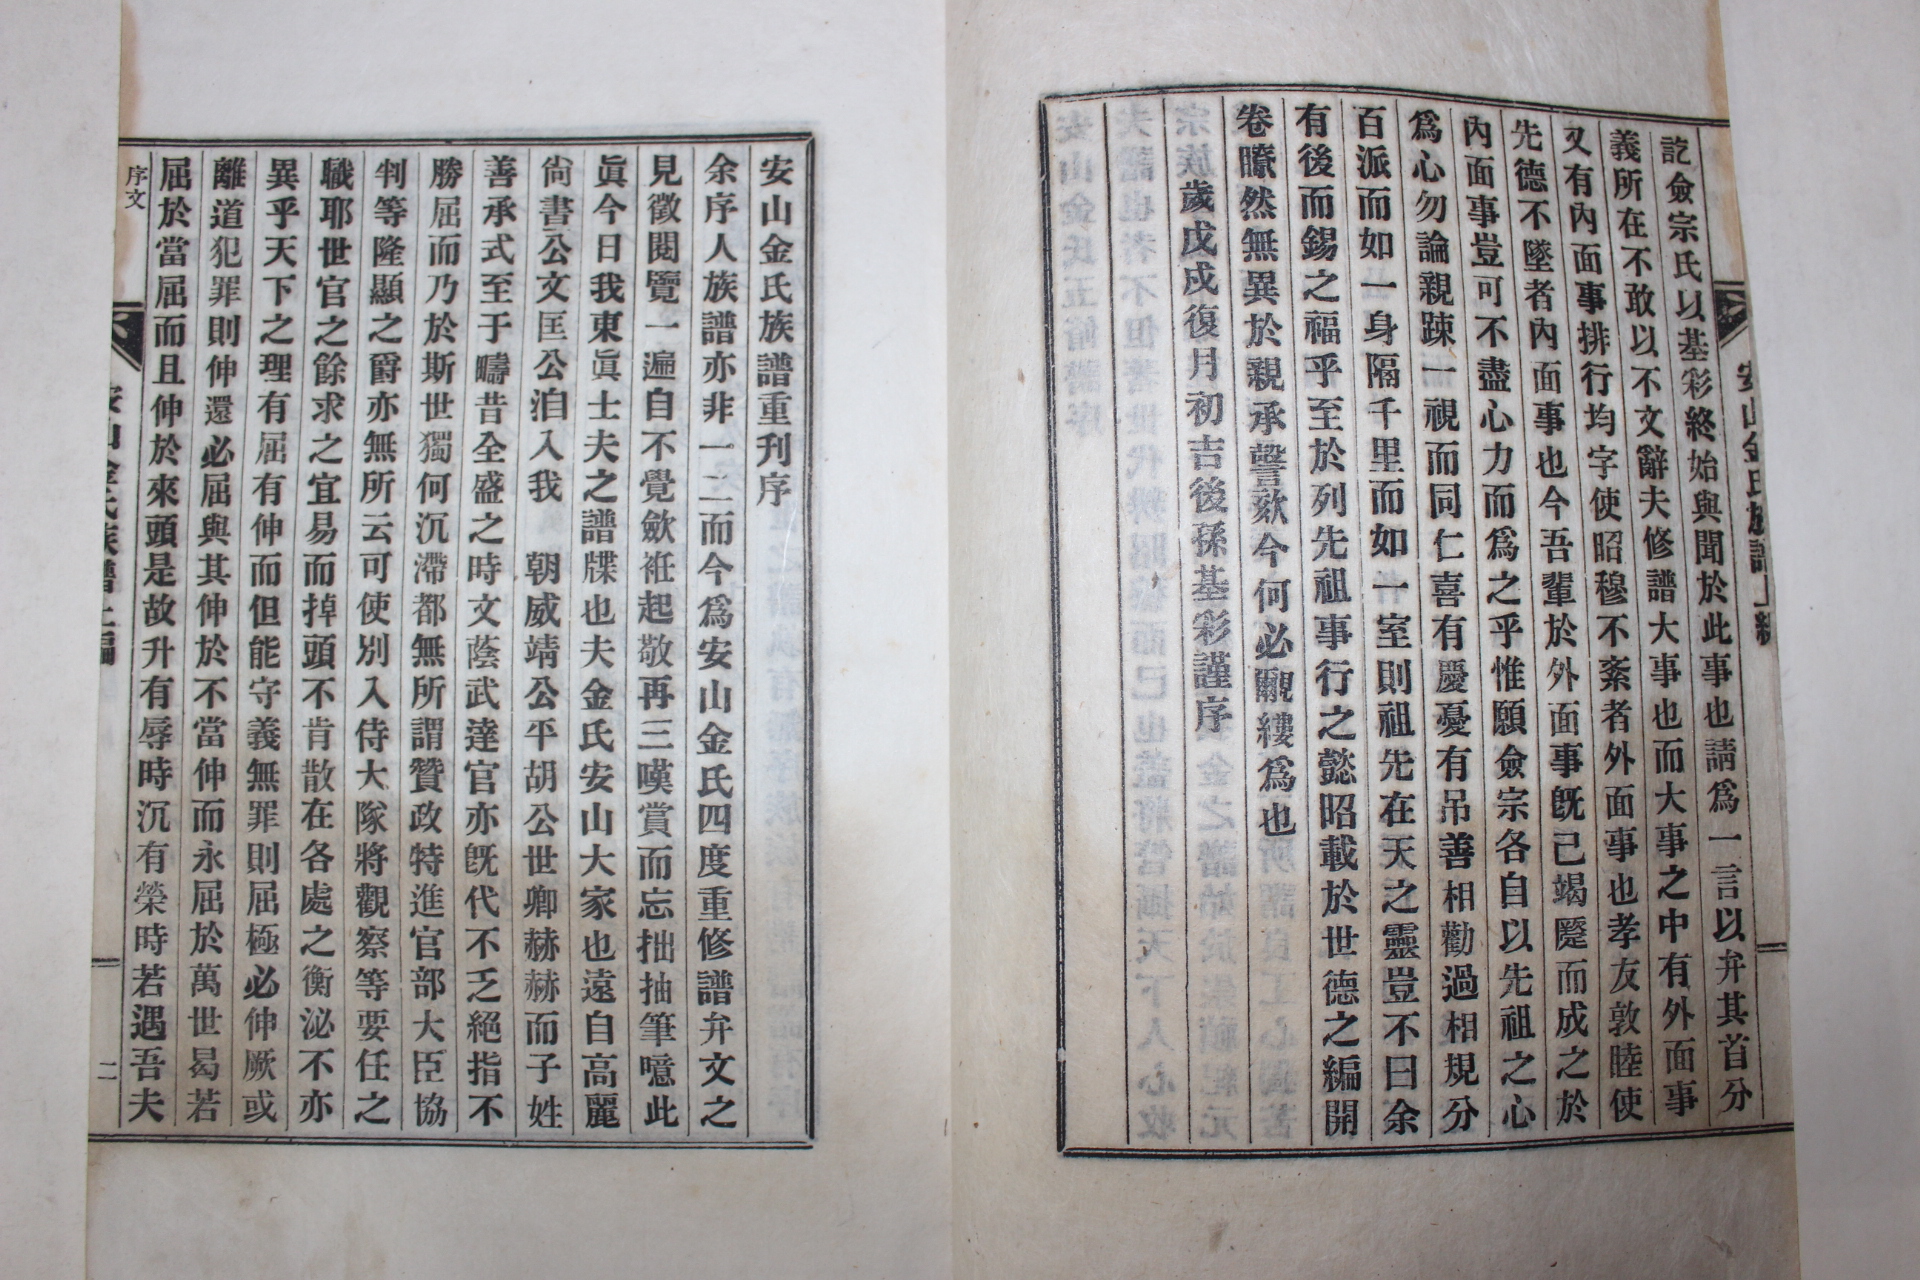 訖僉宗氏以基彩終始與聞於此事也請爲一言以弁其首分
義所在不敢以不文辭夫修譜大事也而大事之中有外面事
又有內面事排行均字使昭穆不紊者外面事也孝友敦睦使
先德不墜者內面事也今吾輩於外面事旣已竭蹙而成之於
內面事豈可不盡心力而爲之乎惟願僉宗各自以先祖之心
爲心勿論親踈一視而同仁喜有慶憂有吊善相勸過相規分
百派而如一身隔千里而如一室則祖先在天之靈豈不曰余
有後而錫之福乎至於列先祖事行之懿昭載於世德之編開
卷瞭然無異於親承謦欬今何必覼縷爲也
歲戊戌復月初吉後孫基彩謹序
安山金氏族譜上編
安山金氏族譜重刊序
余序人族譜亦非一二而今爲安山金氏四度重修譜弁文之
見徵閱覽一遍自不覺歛袵起敬再三嘆賞而忘拙抽筆噫此
眞今日我東眞士夫之譜牒也夫金氏安山大家也遠自高麗
尙書公文匡公洎入我 朝威靖公平胡公世卿赫赫而子姓
善承式至于疇昔全盛之時文蔭武達官亦旣代不乏絕指不
勝屈而乃於斯世獨何沉滯都無所謂贊政特進官部大臣協
判等隆顯之爵亦無所云可使別入侍大隊將觀察等要任之
職耶世官之餘求之宜易而掉頭不肯散在各處之衡泌不亦
異乎天下之理有屈有伸而但能守義無罪則屈極必伸厥或
離道犯罪則伸還必屈與其伸於不當伸而永屈於萬世曷若
屈於當屈而且伸於來頭是故升有辱時沉有榮時若遇吾夫
序文
安山金氏族譜上編
二